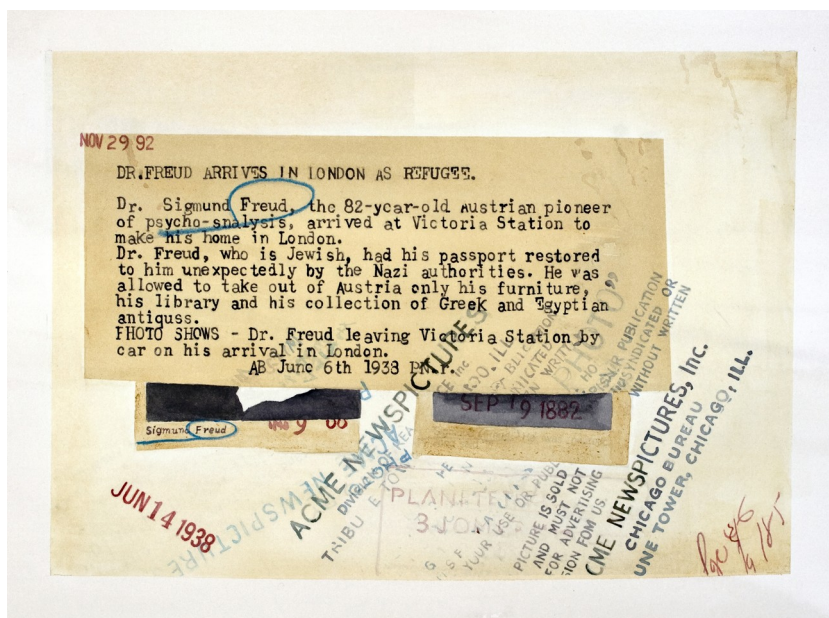 NOV 29 92
DR.FREUD ARRIVES IN LONDON AS REFUGEE.
Dr. Sigmund Freud, the 82-year-old Austrian pioneer
of psycho-snalysis, arrived at Victoria Station to
make his home in London.
Dr. Freud, who is Jewish, had his passport restored
to him unexpectedly by the Nazi authorities. He was
allowed to take out of Austria only his furniture,
his library and his collection of Greek and Egyptian
antiquss.
PHOTO SHOWS - Dr. Freud leaving Victoria Station by
car on his arrival in London.
AB June 6th 1938 P.N.P.
Sigmund Freud
SEP 19 1882
JUN 14 1938
ACME NEWSPICTURES
NEWSPICTURE
PLANETE
PHOTO"
PUBLICATION
SYNDICATED OR
WITHOUT WRITTEN
YOUR USE OR PUBL
PICTURE IS SOLD
AND MUST NOT
FOR ADVERTISING
SION FOM US.
CME NEWSPICTURES, Inc.
CHICAGO BUREAU
UNE TOWER, CHICAGO, ILL.